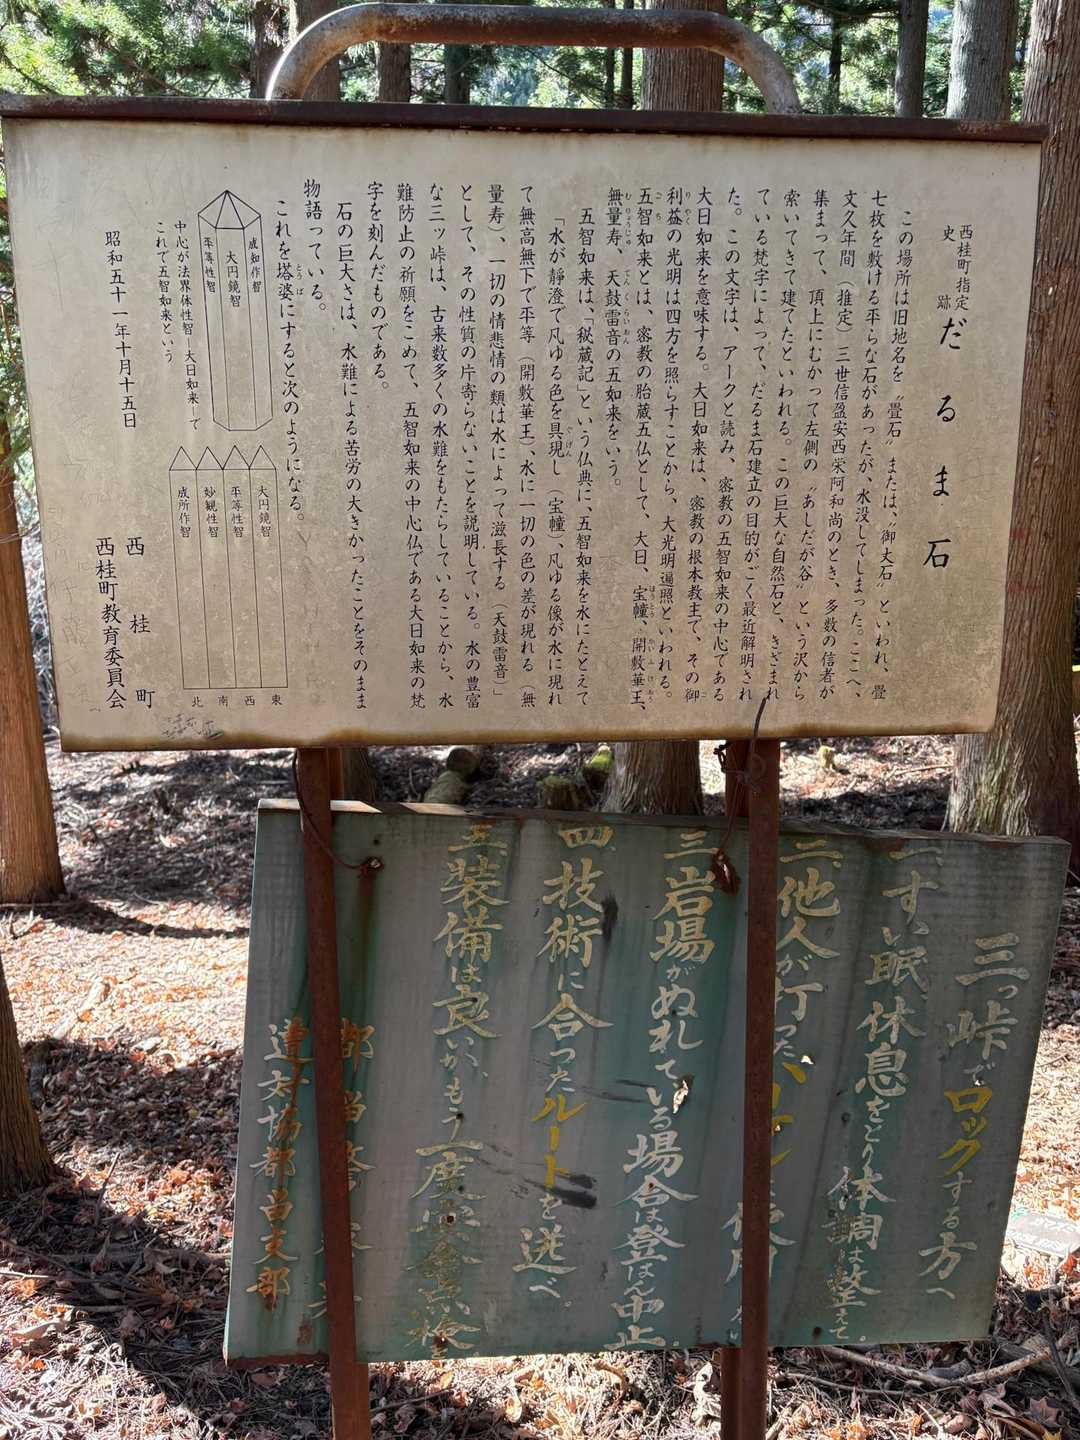 西桂町指定
史跡
だるま石
この場所は旧地名を〝畳石〟または、〝御丈石〟といわれ、畳
七枚を敷ける平らな石があったが、水没してしまった。ここへ、
文久年間（推定）三世信盈安西栄阿和尚のとき、多数の信者が
集まって、頂上にむかって左側の〝あしだが谷〟という沢から
索いてきて建てたといわれる。この巨大な自然石と、きざまれ
ている梵字によって、だるま石建立の目的がごく最近解明され
た。この文字は、アークと読み、密教の五智如来の中心である
大日如来を意味する。大日如来は、密教の根本教主で、その御
利益の光明は四方を照らすことから、大光明遍照といわれる。
五智如来とは、密教の胎蔵五仏として、大日、宝幢、開敷華王、
無量寿、天鼓雷音の五如来をいう。
五智如来は、「秘蔵記」という仏典に、五智如来を水にたとえて
「水が靜澄で凡ゆる色を具現し（宝幢）、凡ゆる像が水に現れ
て無高無下で平等（開敷華王）、水に一切の色の差が現れる（無
量寿）、一切の情悲情の類は水によって滋長する（天鼓雷音）」
として、その性質の片寄らないことを説明している。水の豊富
な三ッ峠は、古来数多くの水難をもたらしていることから、水
難防止の祈願をこめて、五智如来の中心仏である大日如来の梵
字を刻んだものである。
石の巨大さは、水難による苦労の大きかったことをそのまま
物語っている。
これを塔婆にすると次のようになる。
成如作智
大円鏡智
平等性智
中心が法界体性智―大日如来―で
これで五智如来という
大円鏡智
平等性智
妙観性智
成所作智
東
西
南
北
昭和五十一年十月十五日
西桂町
西桂町教育委員会
三っ峠でロックする方へ
一、すい眠休息をとり体調は整えて。
二、他人が打った
使用
三、岩場がぬれている場合は登はん中止。
四、技術に合ったルートを選べ。
五、装備は良いか、もう一度
遭対協都留支部